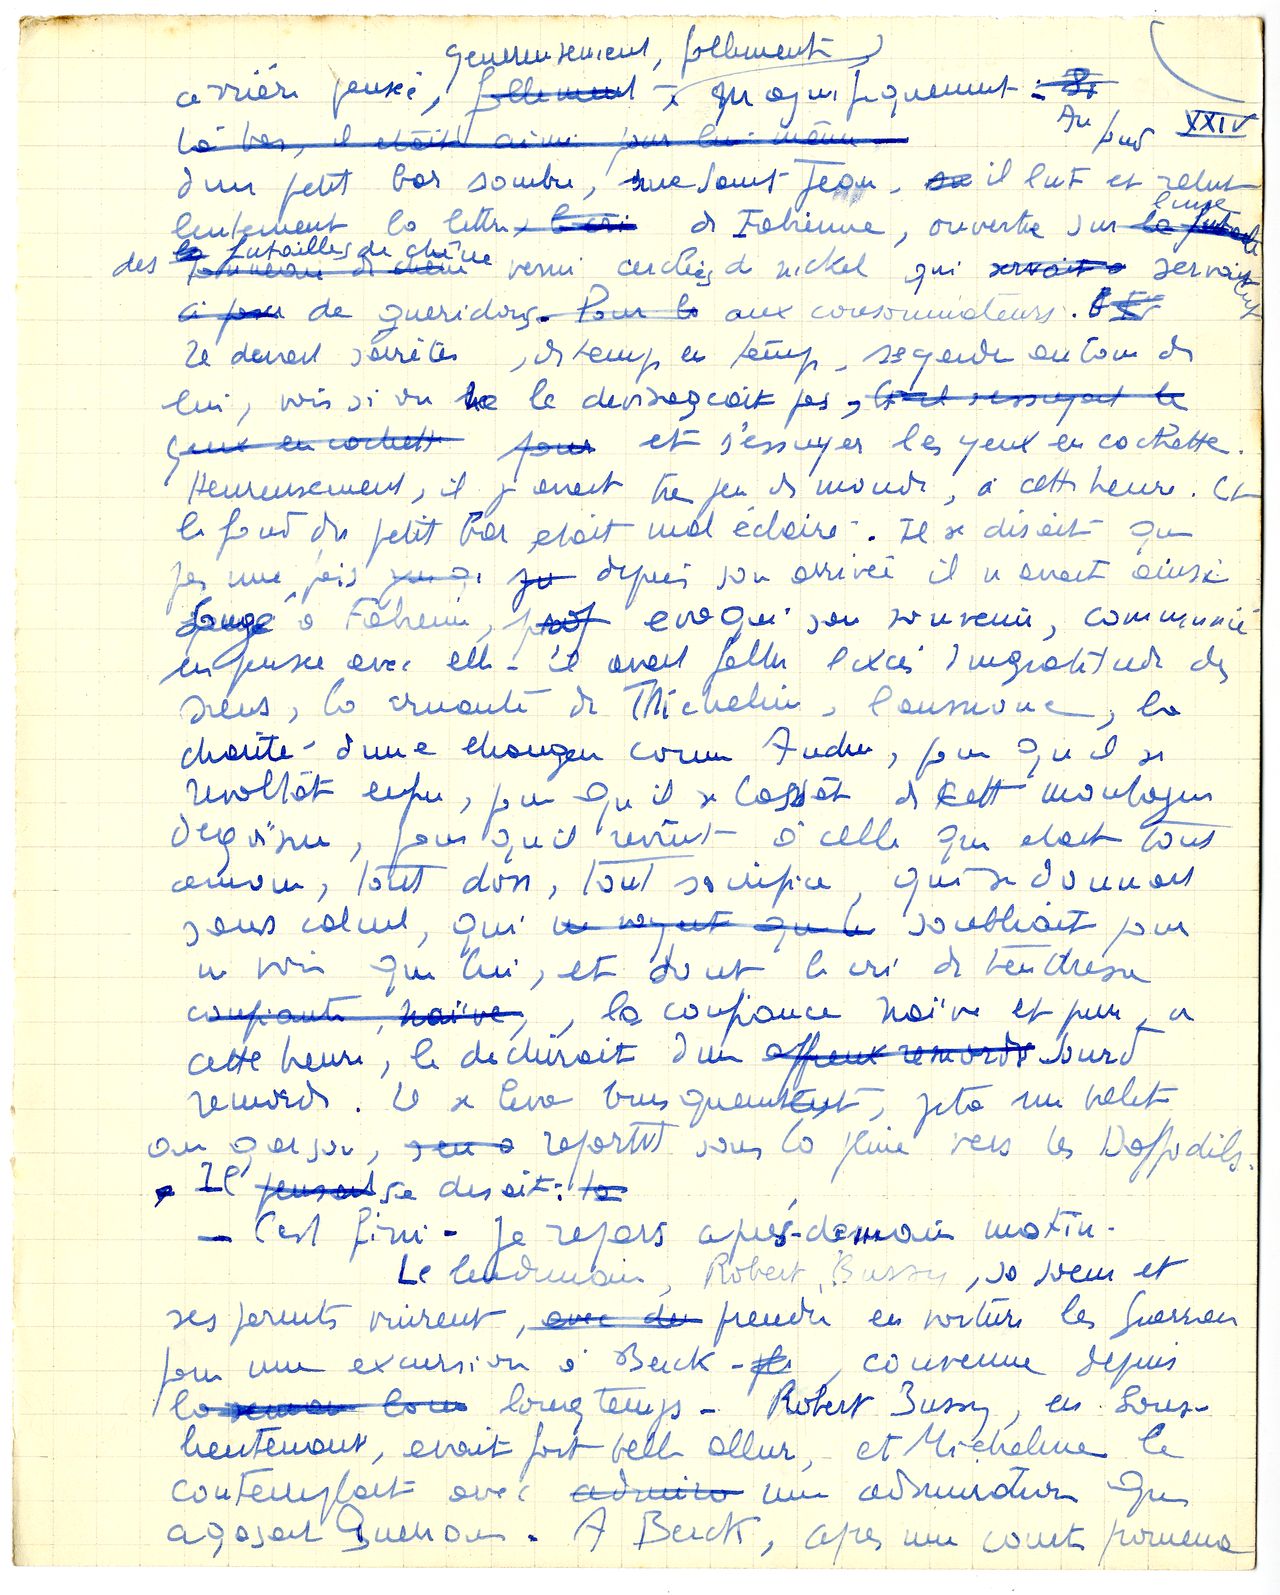 généreusement, follement
arrière pensée, follement, magnifiquement. Au fond XXIV
Là bas, il était aimé pour lui-même
d'un petit bar sombre, rue Saint Jean, il lut et relut
lentement la lettre de Fabienne, ouverte sur l'une
des futailles de chêne verni cerclées de nickel qui servaient
de guéridons aux consommateurs.
Il devait s'arrêter, de temps en temps, regarder autour de
lui, voir si on ne le dévisageait pas, et il essuyait les
yeux en cachette pour et s'essuyer les yeux en cachette.
Heureusement, il y avait très peu de monde, à cette heure. Et
le fond du petit bar était mal éclairé. Il se disait que
pas une fois depuis son arrivée il n'avait ainsi
songé à Fabienne, évoqué son souvenir, communié
en pensée avec elle. Il avait fallu l'excès d'ingratitude des
siens, la cruauté de Micheline, la
charité d'une étrangère comme Andrée, pour qu'il se
révoltât enfin, pour qu'il se lassât de cette montagne
d'égoïsme, pour qu'il revînt à celle qui était tout
amour, tout don, tout sacrifice, qui se donnait
sans calcul, qui ne voyait que lui s'oubliait pour
ne voir que lui, et dont le cri de tendresse
confiante, naïve, la confiance naïve et pure, à
cette heure, le déchirait d'un affreux remords sourd
remords. Il se leva brusquement, jeta un billet
au garçon, repartit sous la pluie vers les Daffodils.
Il pensait se disait:
— C'est fini. Je repars après-demain matin.
Le lendemain, Robert Bussy, sa sœur et
ses parents vinrent, avec du prendre en voiture les Guerran
pour une excursion à Berck, convenue depuis
longtemps. Robert Bussy, en sous-
lieutenant, avait fort belle allure, et Micheline le
contemplait avec une admiration qui
agaçait Guerran. A Berck, après une courte promena